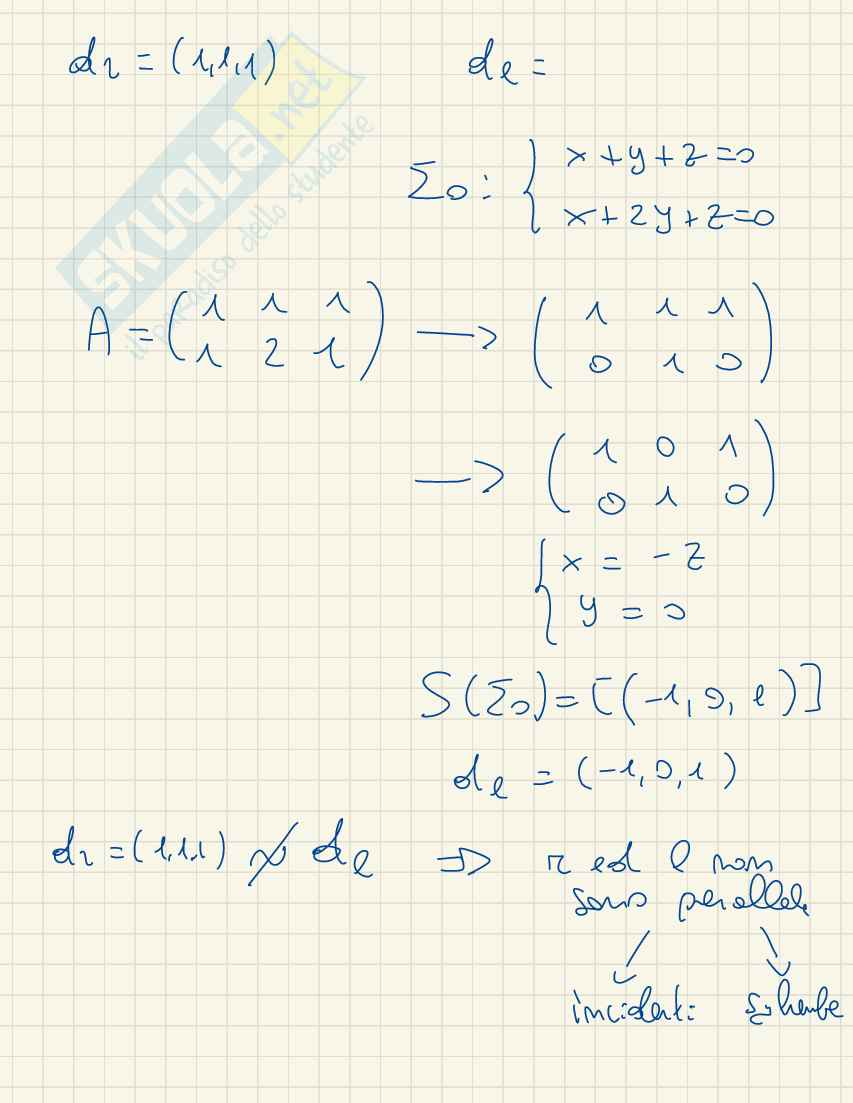 dr = (1,1,1) dl =
Σ0: { x + y + z = 0
x + 2y + z = 0
A = ( 1 1 1
1 2 1 ) ⟶ ( 1 1 1
0 1 0 )
⟶ ( 1 0 1
0 1 0 )
{ x = -z
y = 0
S(Σ0) = [(-1, 0, 1)]
dl = (-1, 0, 1)
dr = (1,1,1) ≁ dl ⇒ r ed l non
sono parallele
incidenti sghembe
SKUOLA.net
il paradiso dello studente